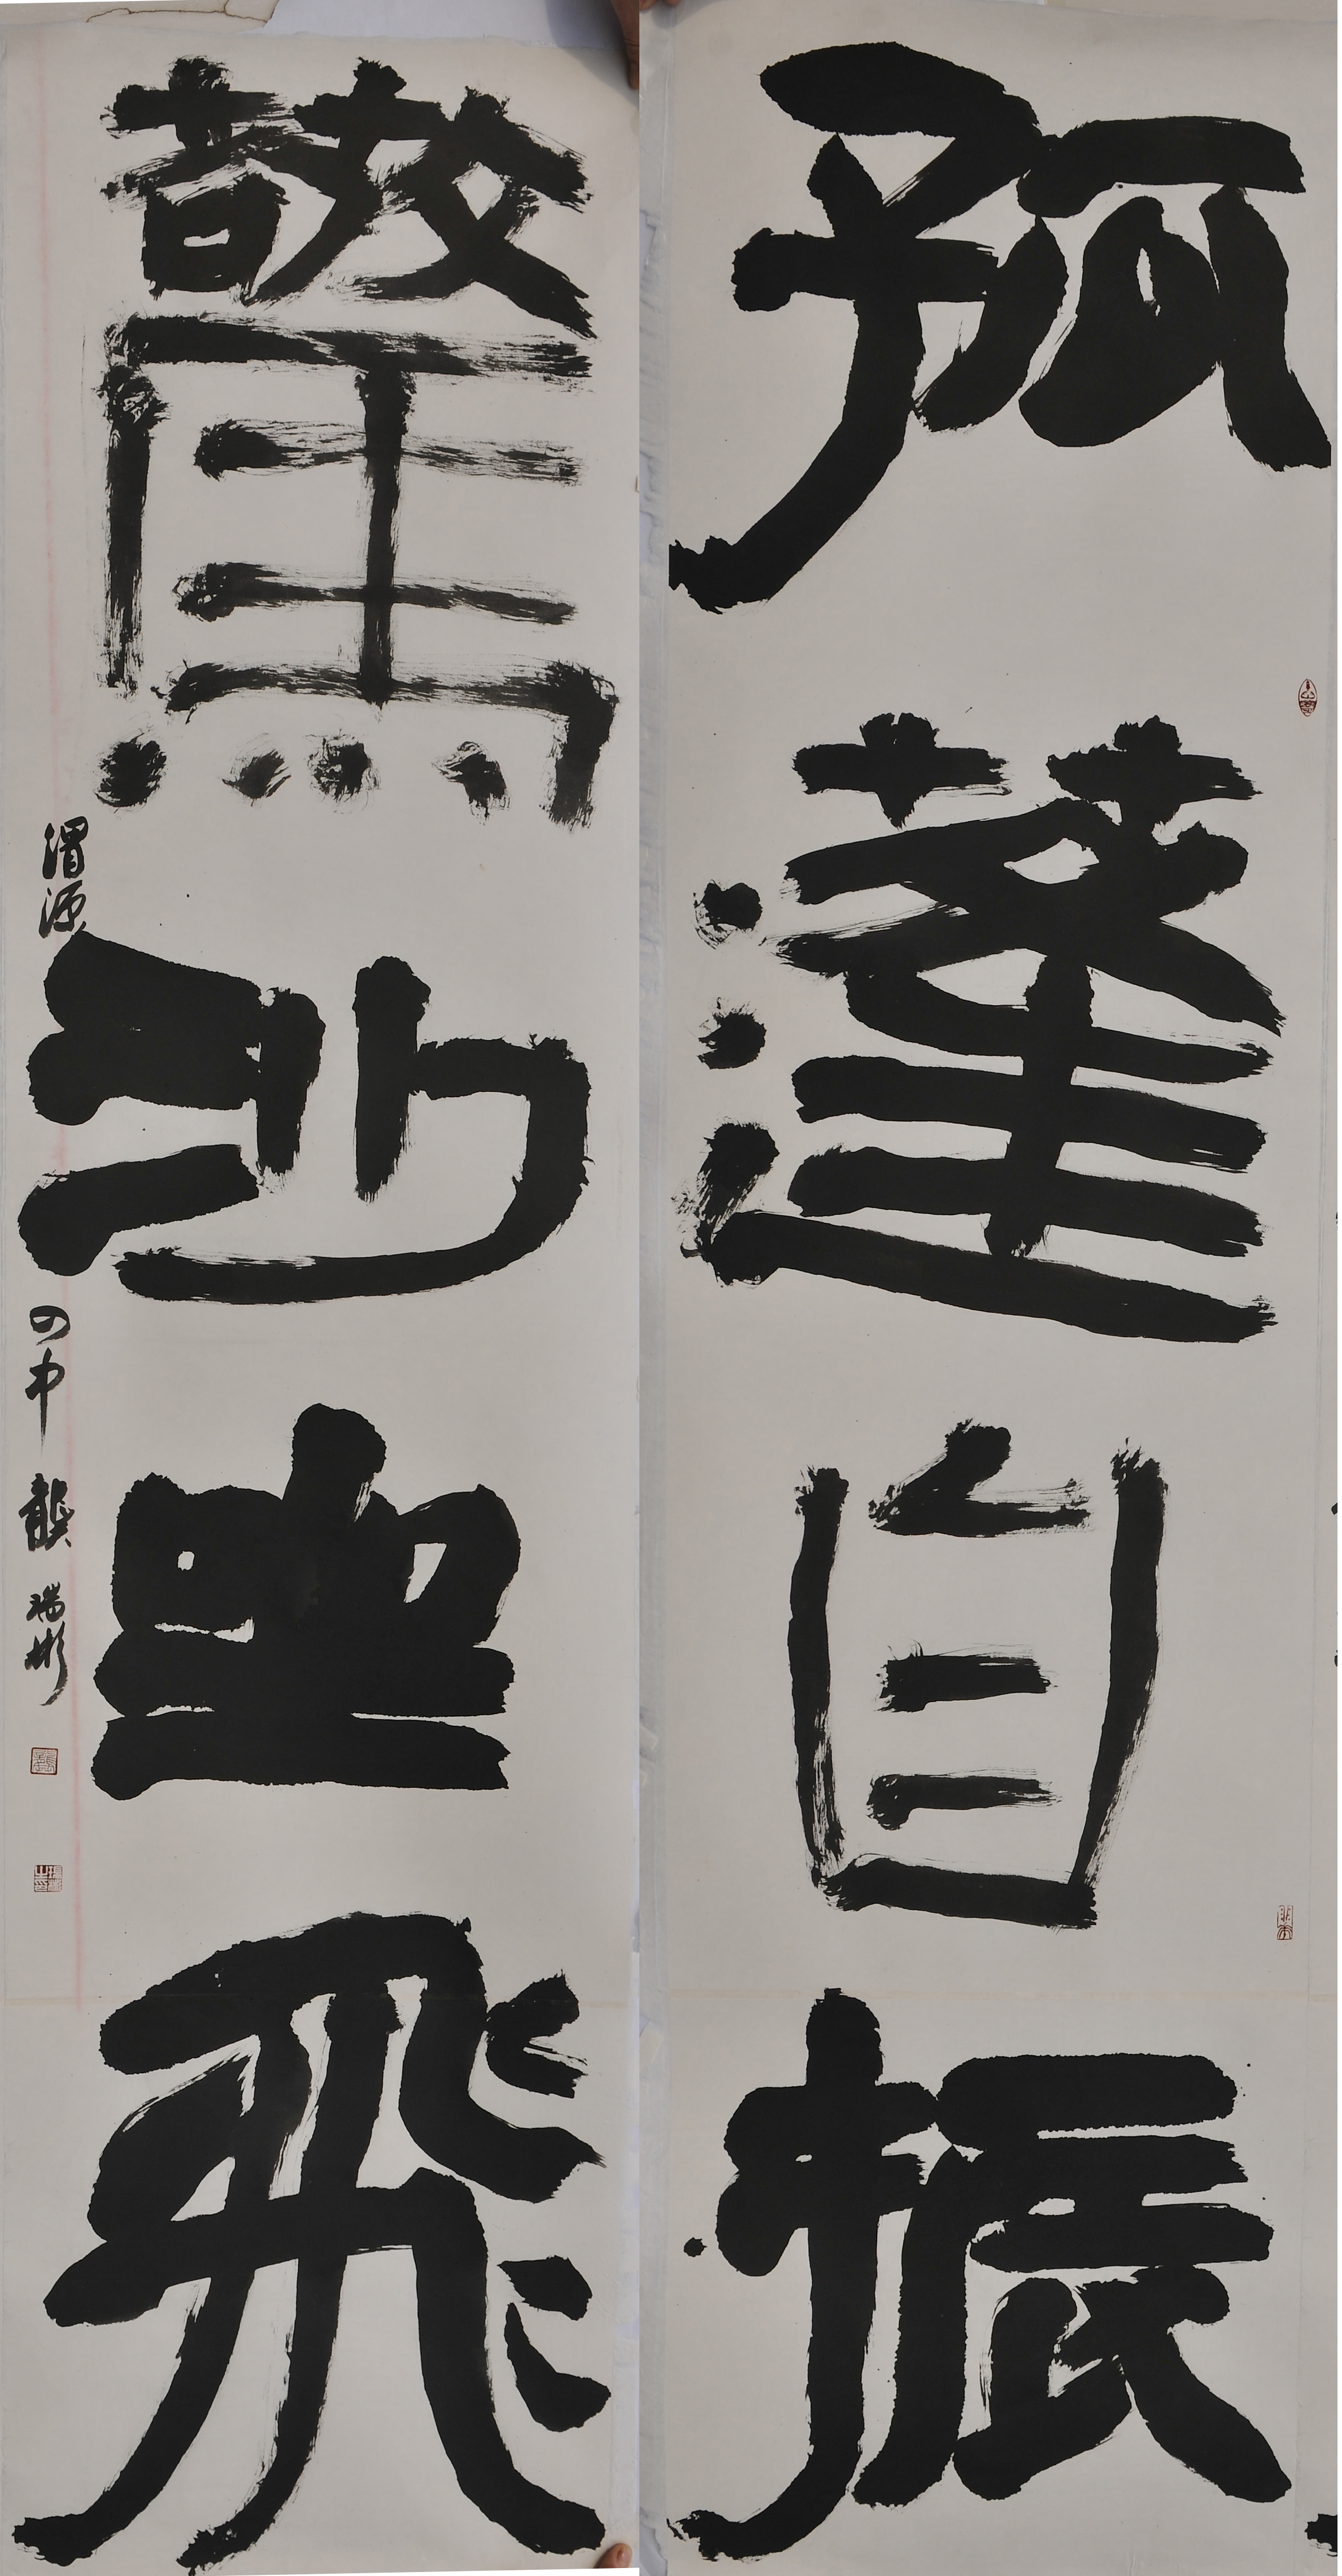 孤蓬自振
驚沙坐飛
渭源四中龔瑞彬